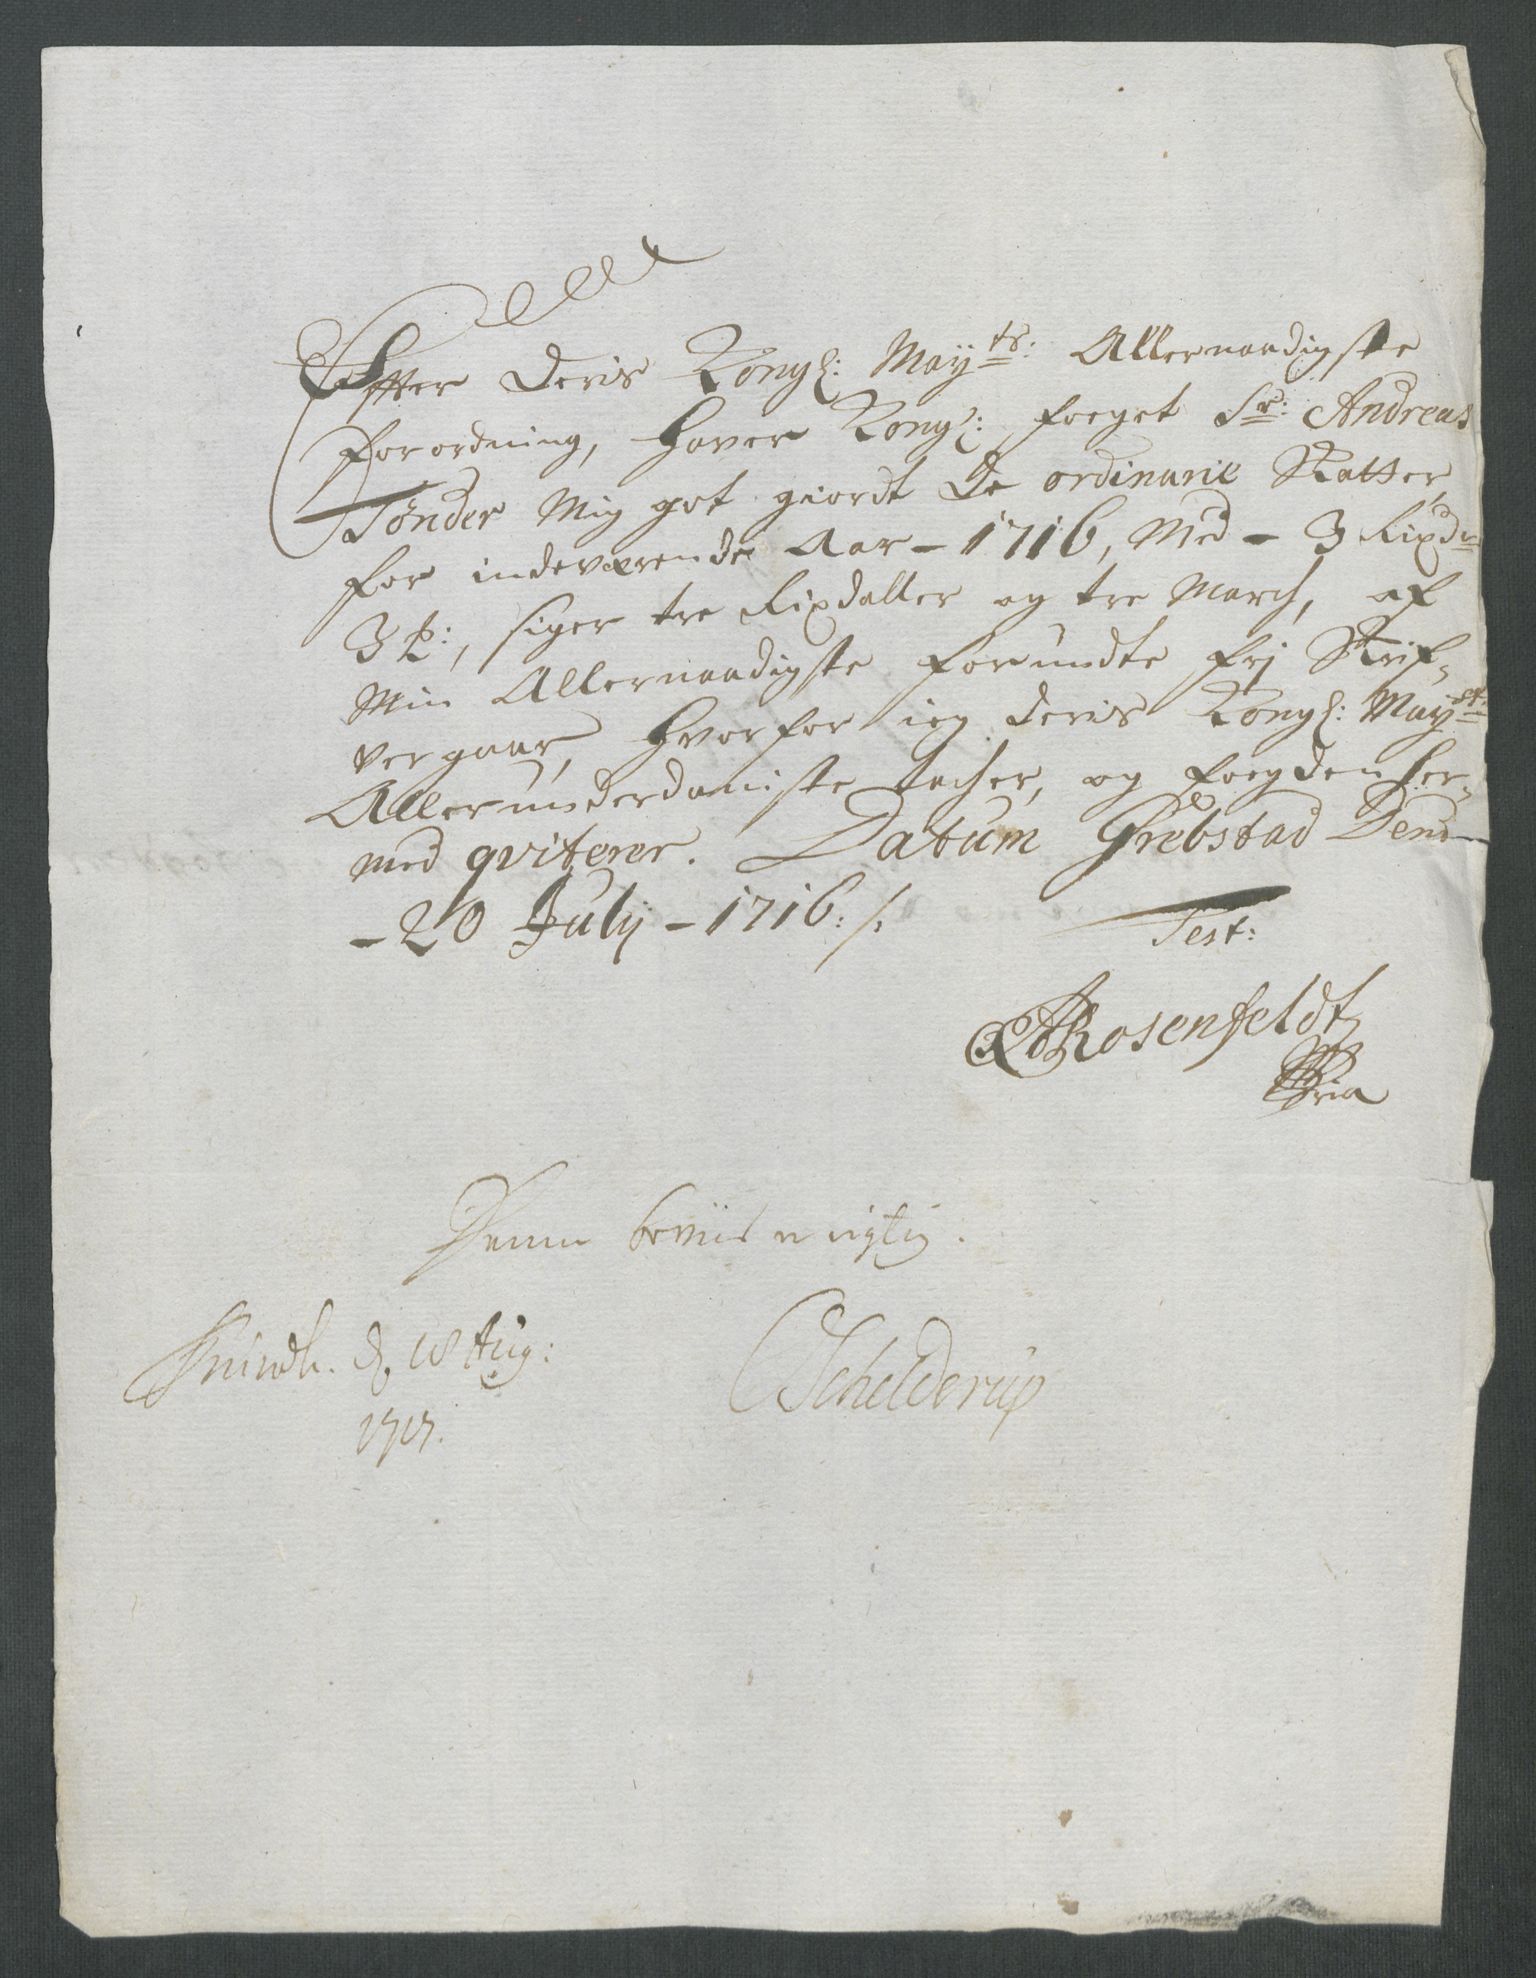 Effter Deris Kongl: Mayts: Allernaadigste
forordning, haver Kongl: foeget Sr: Andreas
Tønder Mig got giordt De ordinarie Skatter,
for indeværende Aar - 1716, Med - 3 Rixdr
3 ℔:, siger tre Rixdaller og tre March, af
Min Allernaadigste forundte frj Skrif-
vergaar, hvorfor ieg Deris Kongl: Mayst:
Allerunderdaniste tacher, og foegden her-
med qviterer. Datum Grebstad Den
- 20 Julij - 1716 ./.
Test:
Rosenfeldt
Denne beviis er rigtig.
d. 18 Aug:
1717.
Schelderup